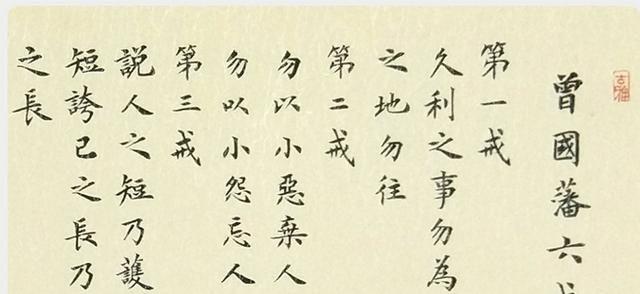 曾國藩六
第一戒
久利之事勿為
之地勿往
第二戒
勿以小惡棄人
勿以小怨忘人
第三戒
説人之短乃護
短誇己之長乃
之長